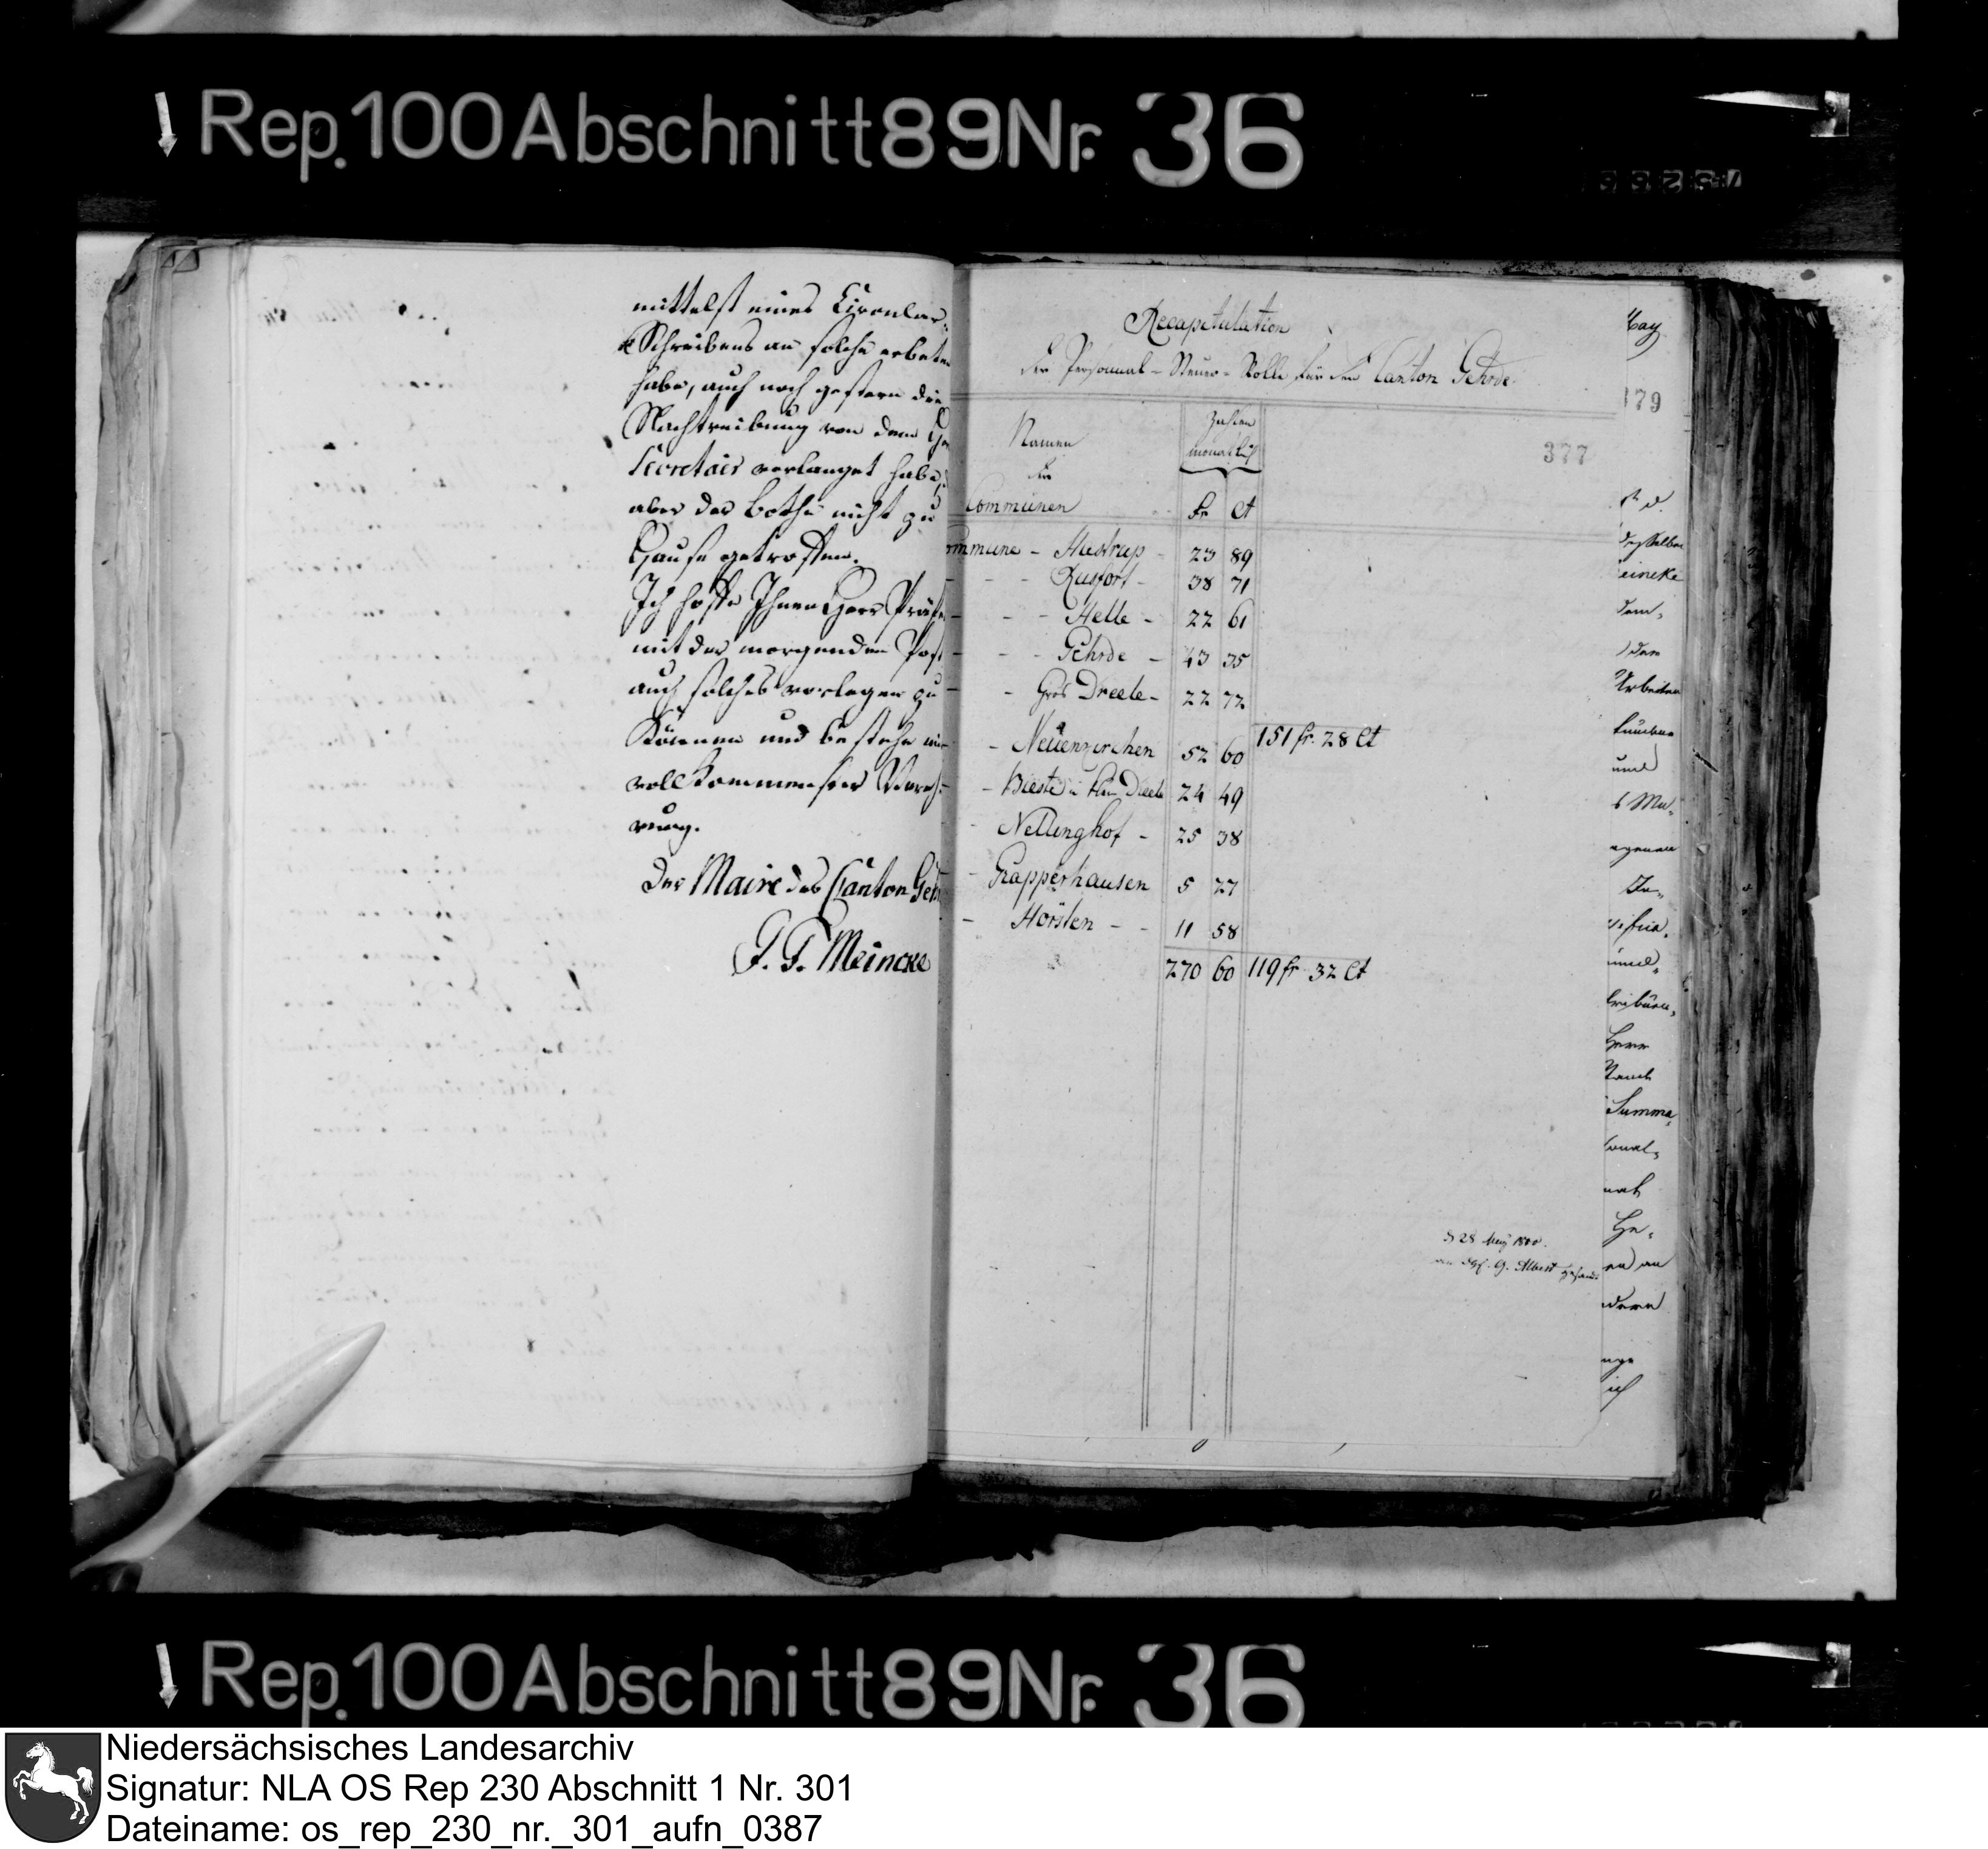 Rep. 100 Abschnitt 89 Nr. 36
mittelst eines Circular-
Schreibens an solche erbeten
habe, auch noch gestern die
Nachtreibung von dem
Secretair verlanget habe,
aber der Bothe nicht zu
Hause getroffen.
Ich hoffe Ihnen Herr Präfe
mit der morgenden Post
auch solches vorlegen zu
Können und bestehe mit
vollkommenster Vereh-
rung.
Der Maire des Canton Geh
Meincke
Recapitulation
der Personal-Steuer-Rolle für den Canton Gehrde
179
377
Namen
der
Communen
Zahlen
monatlich
Fr Ct
ommune - Hastrup - 23 89
- - Rusfort - 38 71
- - Helle - 22 61
- - Gehrde - 43 35
- Gros Dreele - 22 72
151 fr. 28 Ct
- Neuenkirchen 52 60
- Bieste u Klein Dreele 24 49
- Nellinghof - 25 38
- Grapperhausen 5 27
- Hörsten - - 11 58
270 60 119 fr. 32 Ct
desselben
eincke
dem
Arbeiten
und
Herr
Summa
28 May
G. Albert
Rep. 100 Abschnitt 89 Nr. 36
Niedersächsisches Landesarchiv
Signatur: NLA OS Rep 230 Abschnitt 1 Nr. 301
Dateiname: os_rep_230_nr._301_aufn_0387